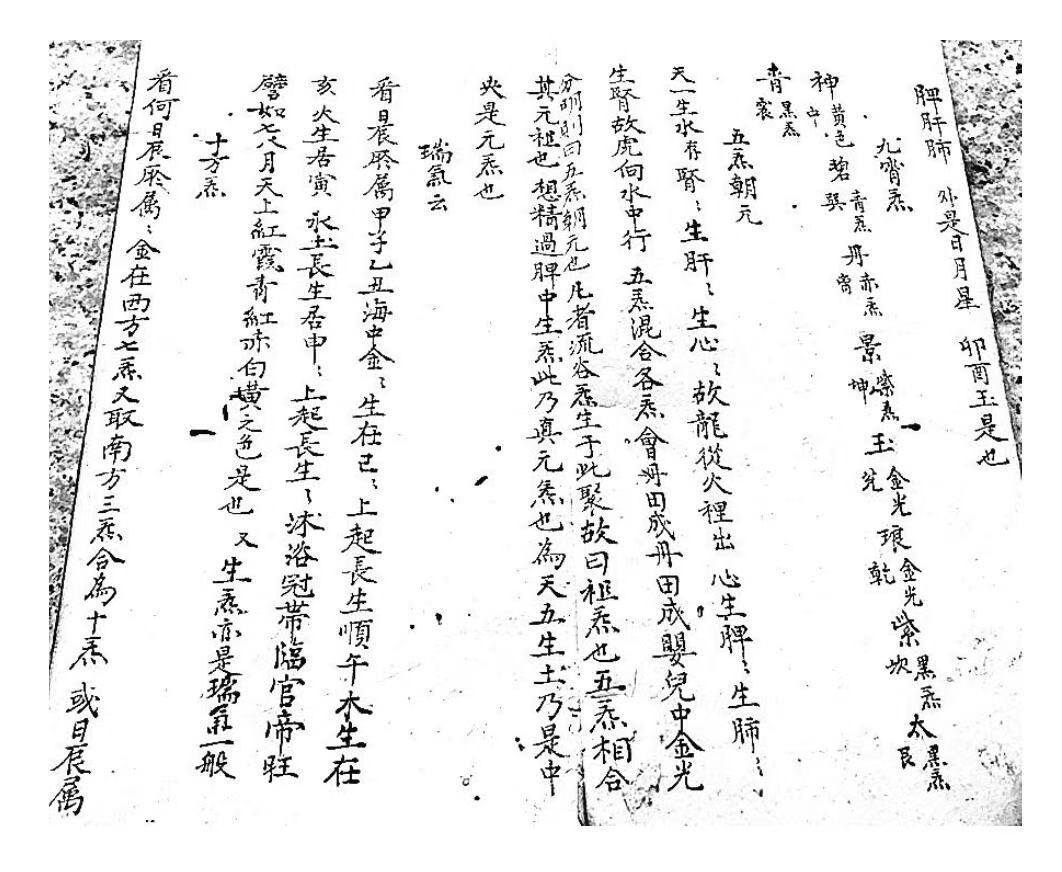 脾肝肺 外是日月星 卯酉玉是也
九霄炁
神 黄色中 碧 青炁巽 丹 赤炁离 景 紫炁坤 玉 金光兑 琅 金光乾 紫 黑炁坎 太 黑炁艮
青 黑炁震
五炁朝元
天一生水在腎〻生肝〻生心〻故龍從火裡出 心生脾〻生肺〻
生腎故虎向水中行 五炁混合各炁會丹田成丹田成嬰兒中金光
分明則曰五炁朝元也 凡者流谷炁生于此聚故曰祖炁也五炁相合
其元祖也想精過脾中生炁此乃真元炁也為天五生土乃是中
央是元炁也
瑞氣云
看日辰所属甲子乙丑海中金〻生在巳〻上起長生順午木生在
亥火生居寅水土長生居申〻上起長生〻沐浴冠帶臨官帝旺
譬如七八月天上紅霞青紅赤白黄之色是也 又生炁亦是瑞氣一般
十方炁
看何日辰所属〻金在西方七炁又取南方三炁合為十炁 或日辰属